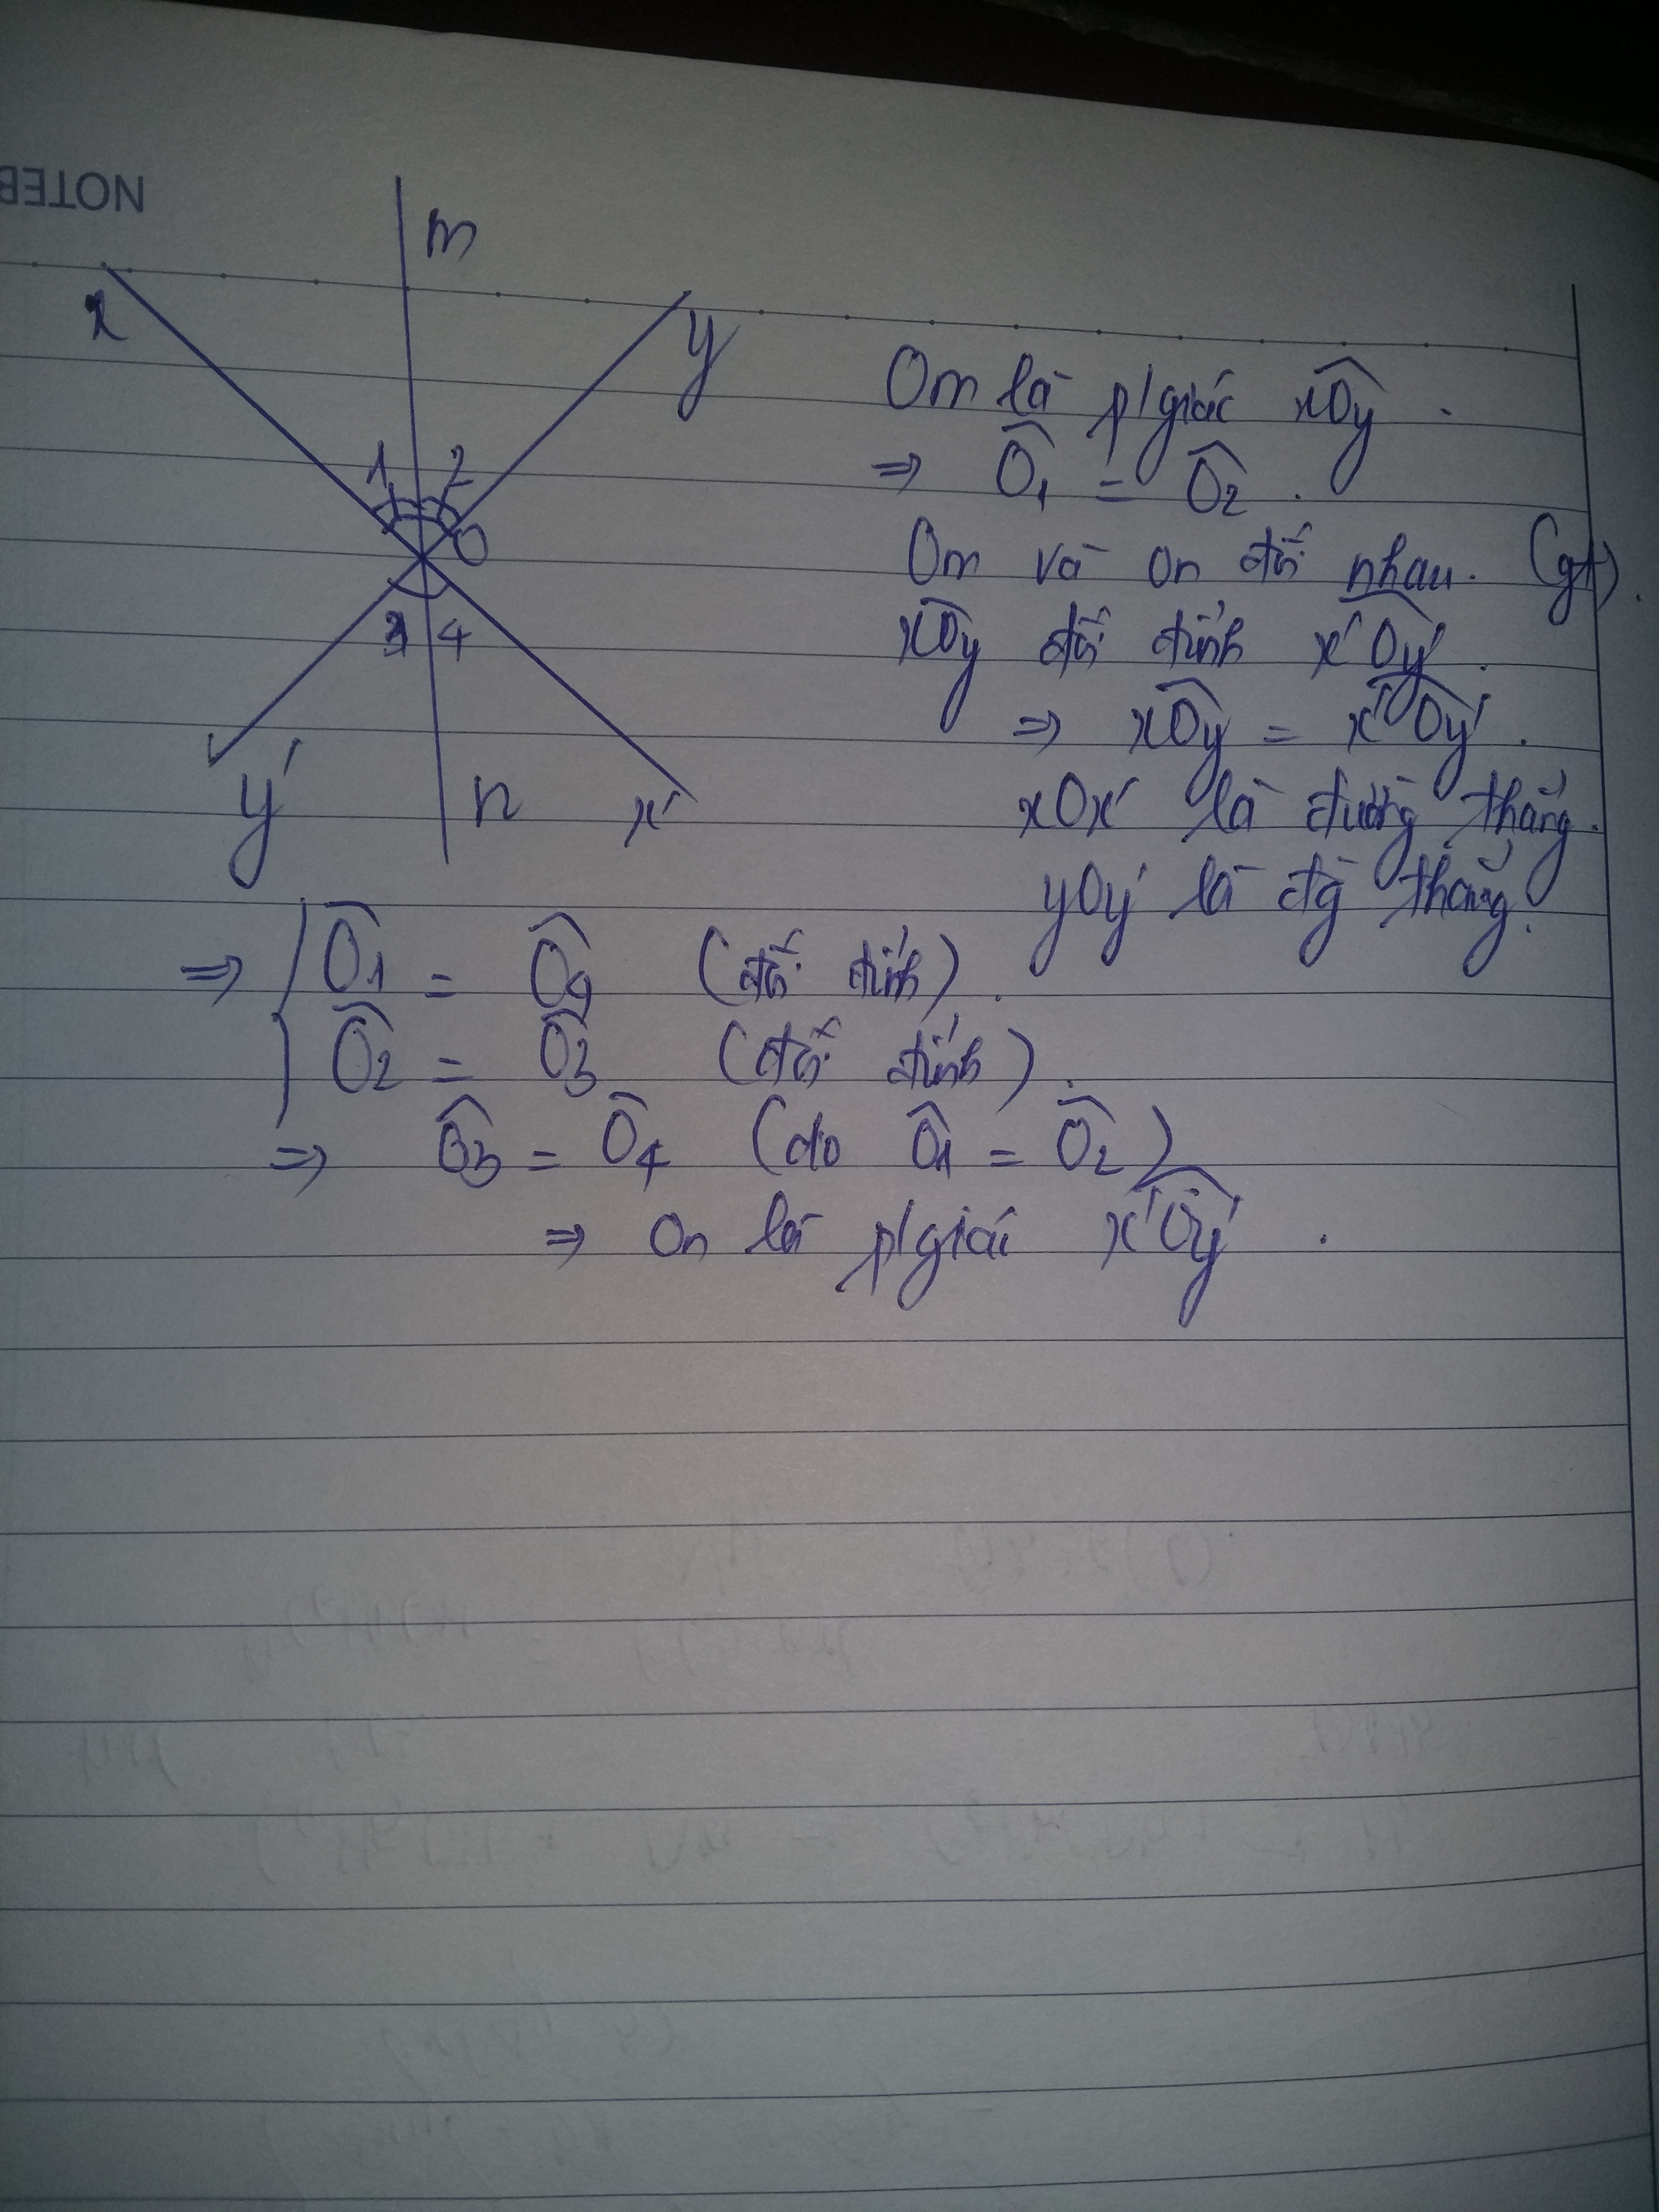 NOTEB
m
x
y
1 2
O
3 4
y'
n
x'
Om là p/giác xOy.
⇒ Ô1 = Ô2.
Om và on đối nhau. (gt).
xOy đối đỉnh x'Oy'.
⇒ xOy = x'Oy'.
xOx' là đường thẳng.
yOy' là đg thẳng.
⇒ { Ô1 = Ô4 (đối đỉnh).
Ô2 = Ô3 (đối đỉnh).
⇒ Ô3 = Ô4 (do Ô1 = Ô2)
⇒ On là p/giác x'Oy'.